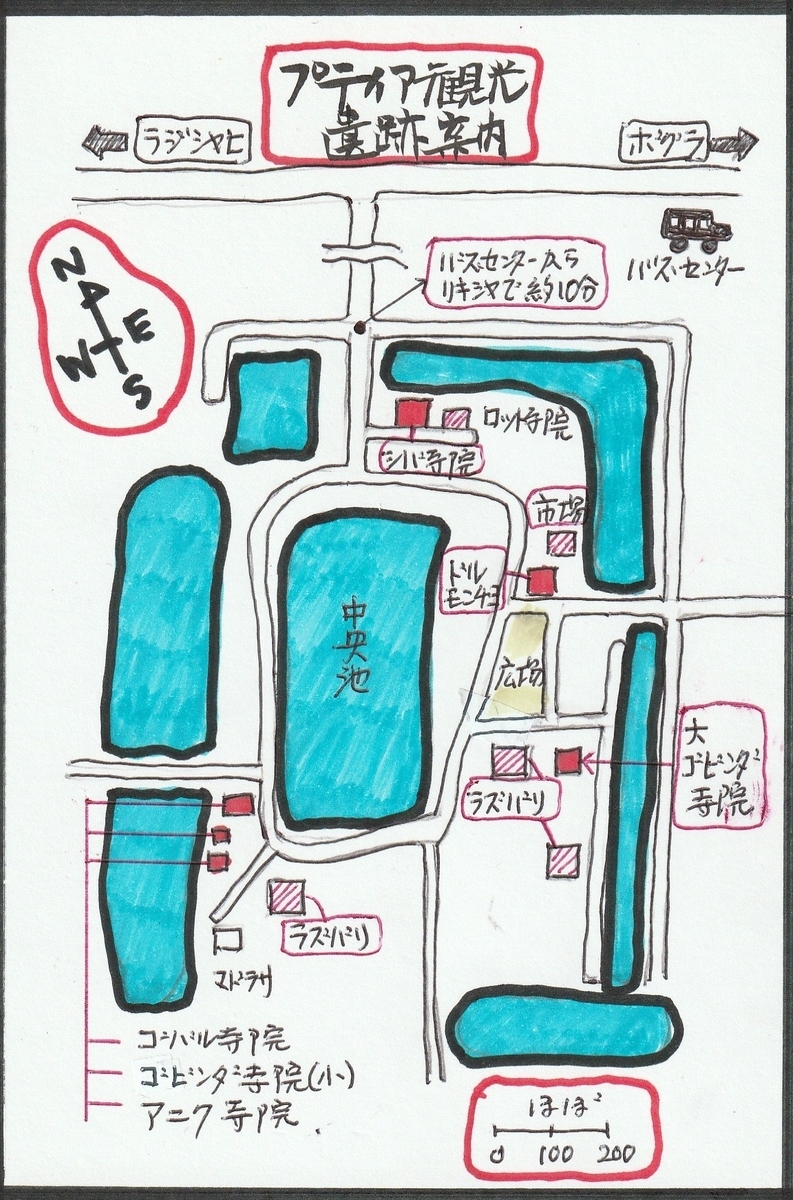 プティア観光
遺跡案内
ラジシャヒ
ボグラ
バスセンターから
リキシャで約10分
バスセンター
N
W
E
S
ロット寺院
シバ寺院
市場
ドル
モンチョ
中央池
広場
大
ゴビンダ
寺院
ラズバリ
ラズバリ
マドラサ
コパル寺院
ゴビンダ寺院(小)
アニク寺院
ほぼ
0 100 200